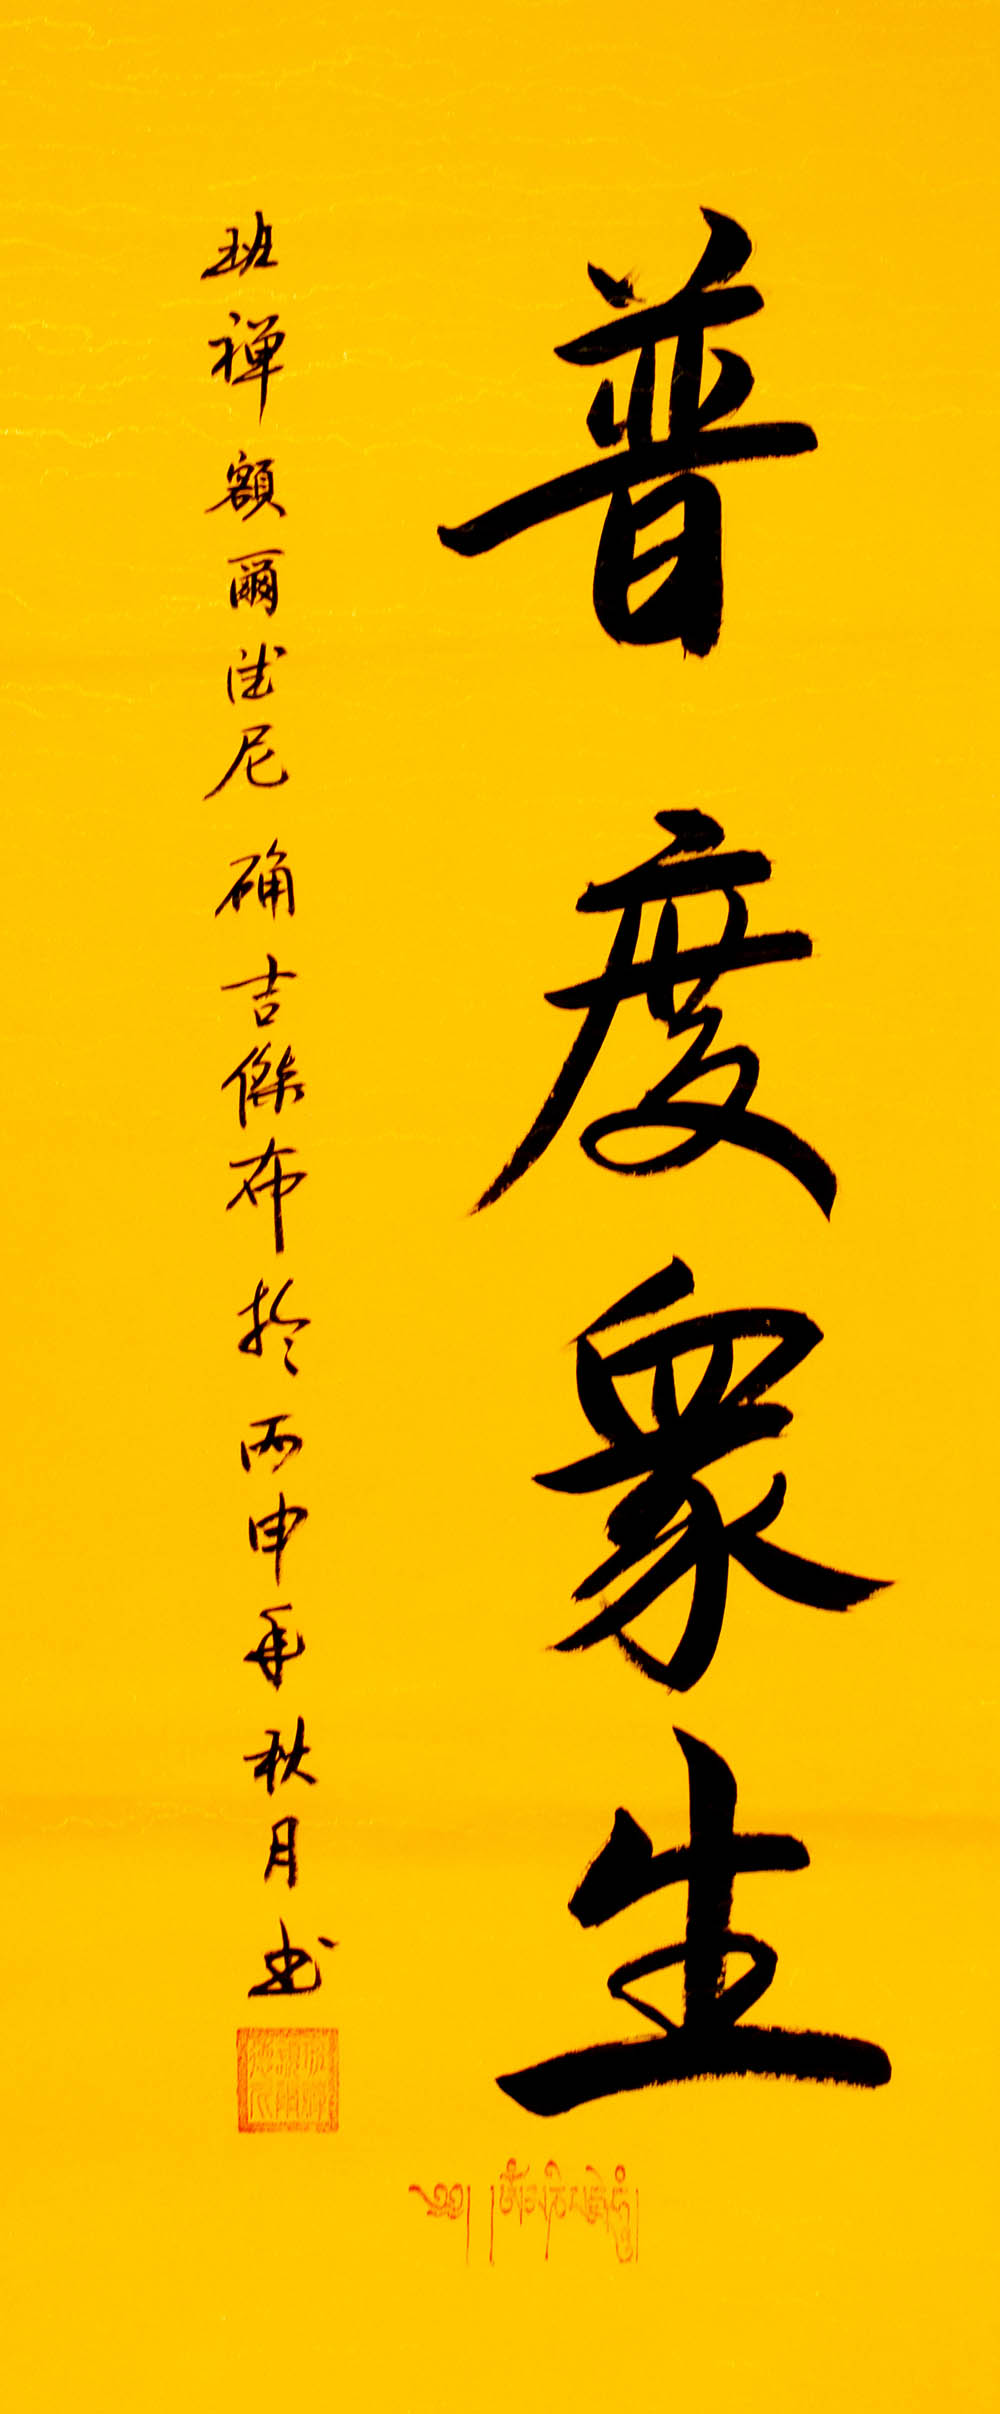 普度眾生
班禪額爾德尼 确吉傑布於丙申年秋月书
༄༅། །ཨོཾ་མ་ཎི་པདྨེ་ཧཱུྃ།